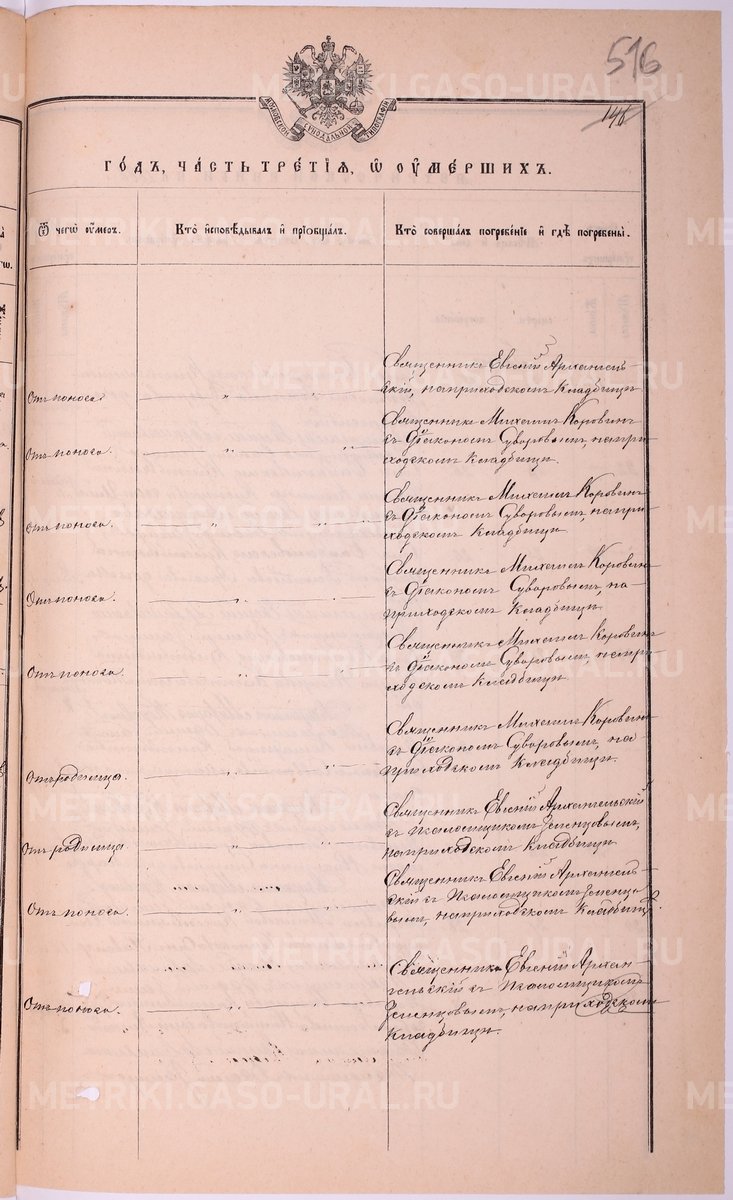 516
146
МОСКОВСКОЙ СѴНОДАЛЬНОЙ ТИПОГРАФІИ
ГО́ДЪ, ЧА́СТЬ ТРЕ́ТІЯ, Ѿ ОУ҆МЕ́РШИХЪ.
Ѿ чегѡ̀ оу҆́меръ.
Кто̀ и҆сповѣ́дывалъ и҆ прїѡбща́лъ.
Кто̀ соверша́лъ погребе́нїе и҆ гдѣ̀ погребены̀.
Священникъ Евгеній Архангель-
скій, на приходскомъ кладбищѣ.
Отъ поноса.
Священникъ Михаилъ Коровинъ
съ Діакономъ Суворовымъ, на при-
ходскомъ кладбищѣ.
Отъ поноса.
Священникъ Михаилъ Коровинъ
съ Діакономъ Суворовымъ, на при-
ходскомъ кладбищѣ.
Отъ поноса.
Священникъ Михаилъ Коровинъ
съ Діакономъ Суворовымъ, на
приходскомъ кладбищѣ.
Отъ поноса.
Священникъ Михаилъ Коровинъ
съ Діакономъ Суворовымъ, на при-
ходскомъ кладбищѣ.
Отъ поноса.
Священникъ Михаилъ Коровинъ
съ Діакономъ Суворовымъ, на
приходскомъ кладбищѣ.
Отъ родимца.
Священникъ Евгеній Архангельскій
съ псаломщикомъ Зеленцовымъ,
на приходскомъ кладбищѣ.
Отъ родимца
Священникъ Евгеній Архангель-
скій съ псаломщикомъ Зеленцо-
вымъ, на приходскомъ кладбищѣ.
Отъ поноса.
Священникъ Евгеній Архан-
гельскій съ псаломщикомъ
Зеленцовымъ, на приходскомъ
кладбищѣ.
Отъ поноса.
METRIKI.GASO-URAL.RU